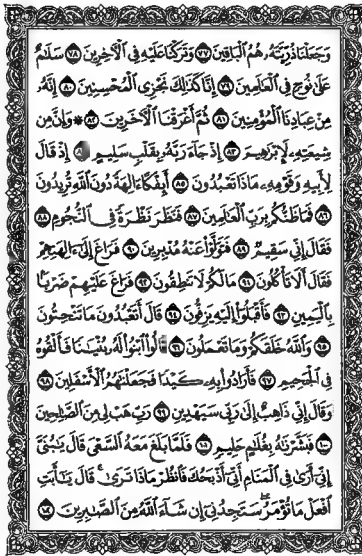 وَجَعَلْنَا ذُرِّيَّتَهُۥ هُمُ ٱلْبَاقِينَ ٧٧ وَتَرَكْنَا عَلَيْهِ فِي ٱلْأَخِرِينَ ٧٨ سَلَٰمٌ
عَلَىٰ نُوحٍ فِي ٱلْعَٰلَمِينَ ٧٩ إِنَّا كَذَٰلِكَ نَجْزِي ٱلْمُحْسِنِينَ ٨٠ إِنَّهُۥ
مِنْ عِبَادِنَا ٱلْمُؤْمِنِينَ ٨١ ثُمَّ أَغْرَقْنَا ٱلْأَخَرِينَ ٨٢ ۞ وَإِنَّ مِن
شِيعَتِهِۦ لَإِبْرَٰهِيمَ ٨٣ إِذْ جَآءَ رَبَّهُۥ بِقَلْبٍ سَلِيمٍ إِذْ قَالَ
لِأَبِيهِ وَقَوْمِهِۦ مَاذَا تَعْبُدُونَ ٨٥ أَئِفْكًا ءَالِهَةً دُونَ ٱللَّهِ تُرِيدُونَ
٨٦ فَمَا ظَنُّكُم بِرَبِّ ٱلْعَٰلَمِينَ ٨٧ فَنَظَرَ نَظْرَةً فِي ٱلنُّجُومِ ٨٨
فَقَالَ إِنِّي سَقِيمٌ ٨٩ فَتَوَلَّوْا۟ عَنْهُ مُدْبِرِينَ ٩٠ فَرَاغَ إِلَىٰٓ ءَالِهَتِهِمْ
فَقَالَ أَلَا تَأْكُلُونَ ٩١ مَا لَكُمْ لَا تَنطِقُونَ ٩٢ فَرَاغَ عَلَيْهِمْ ضَرْبًۢا
بِٱلْيَمِينِ ٩٣ فَأَقْبَلُوٓا۟ إِلَيْهِ يَزِفُّونَ ٩٤ قَالَ أَتَعْبُدُونَ مَا تَنْحِتُونَ
٩٥ وَٱللَّهُ خَلَقَكُمْ وَمَا تَعْمَلُونَ ٩٦ قَالُوا۟ ٱبْنُوا۟ لَهُۥ بُنْيَٰنًا فَأَلْقُوهُ
فِي ٱلْجَحِيمِ ٩٧ فَأَرَادُوا۟ بِهِۦ كَيْدًا فَجَعَلْنَٰهُمُ ٱلْأَسْفَلِينَ ٩٨
وَقَالَ إِنِّي ذَاهِبٌ إِلَىٰ رَبِّي سَيَهْدِينِ ٩٩ رَبِّ هَبْ لِي مِنَ ٱلصَّٰلِحِينَ
١٠٠ فَبَشَّرْنَٰهُ بِغُلَٰمٍ حَلِيمٍ ١٠١ فَلَمَّا بَلَغَ مَعَهُ ٱلسَّعْيَ قَالَ يَٰبُنَيَّ
إِنِّيٓ أَرَىٰ فِي ٱلْمَنَامِ أَنِّيٓ أَذْبَحُكَ فَٱنظُرْ مَاذَا تَرَىٰ ۚ قَالَ يَٰٓأَبَتِ
ٱفْعَلْ مَا تُؤْمَرُ ۖ سَتَجِدُنِيٓ إِن شَآءَ ٱللَّهُ مِنَ ٱلصَّٰبِرِينَ ١٠٢